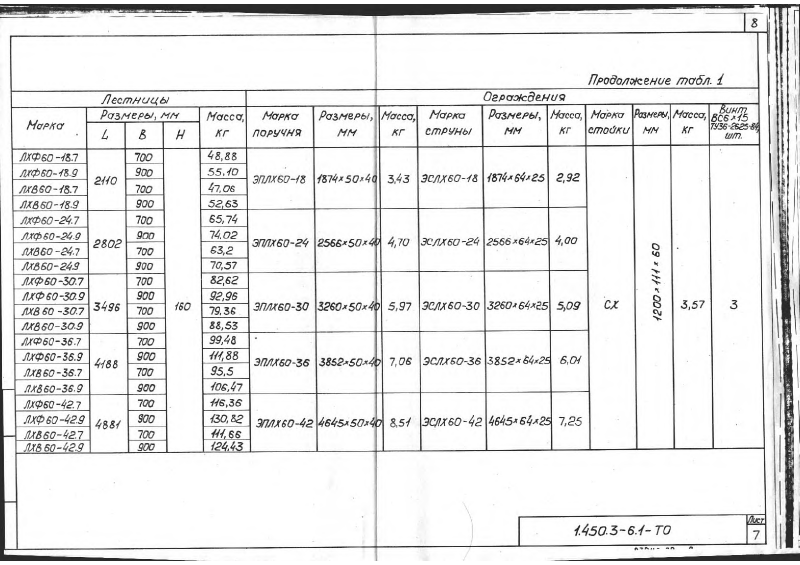 8
Продолжение табл. 1
Лестницы Ограждения
Марка Размеры, мм Масса, кг Марка поручня Размеры, мм Масса, кг Марка струны Размеры, мм Масса, кг Марка стойки Размеры, мм Масса, кг Винт ВС6×15 ТУ36-2625-84, шт.
L В Н
ЛХФ60-18.7 2110 700 160 48,88 ЭПЛХ60-18 1874×50×40 3,43 ЭСЛХ60-18 1874×64×25 2,92 СХ 1200×111×60 3,57 3
ЛХФ60-18.9 900 55,10
ЛХВ60-18.7 700 47,06
ЛХВ60-18.9 900 52,63
ЛХФ60-24.7 2802 700 65,74 ЭПЛХ60-24 2566×50×40 4,70 ЭСЛХ60-24 2566×64×25 4,00
ЛХФ60-24.9 900 74,02
ЛХВ60-24.7 700 63,2
ЛХВ60-24.9 900 70,57
ЛХФ60-30.7 3496 700 82,62 ЭПЛХ60-30 3260×50×40 5,97 ЭСЛХ60-30 3260×64×25 5,09
ЛХФ60-30.9 900 92,96
ЛХВ60-30.7 700 79,36
ЛХВ60-30.9 900 88,53
ЛХФ60-36.7 4188 700 99,48 ЭПЛХ60-36 3852×50×40 7,06 ЭСЛХ60-36 3852×64×25 6,01
ЛХФ60-36.9 900 111,88
ЛХВ60-36.7 700 95,5
ЛХВ60-36.9 900 106,47
ЛХФ60-42.7 4881 700 116,36 ЭПЛХ60-42 4645×50×40 8.51 ЭСЛХ60-42 4645×64×25 7,25
ЛХФ60-42.9 900 130,82
ЛХВ60-42.7 700 111,66
ЛХВ60-42.9 900 124,43
1.450.3-6.1-ТО
Лист
7